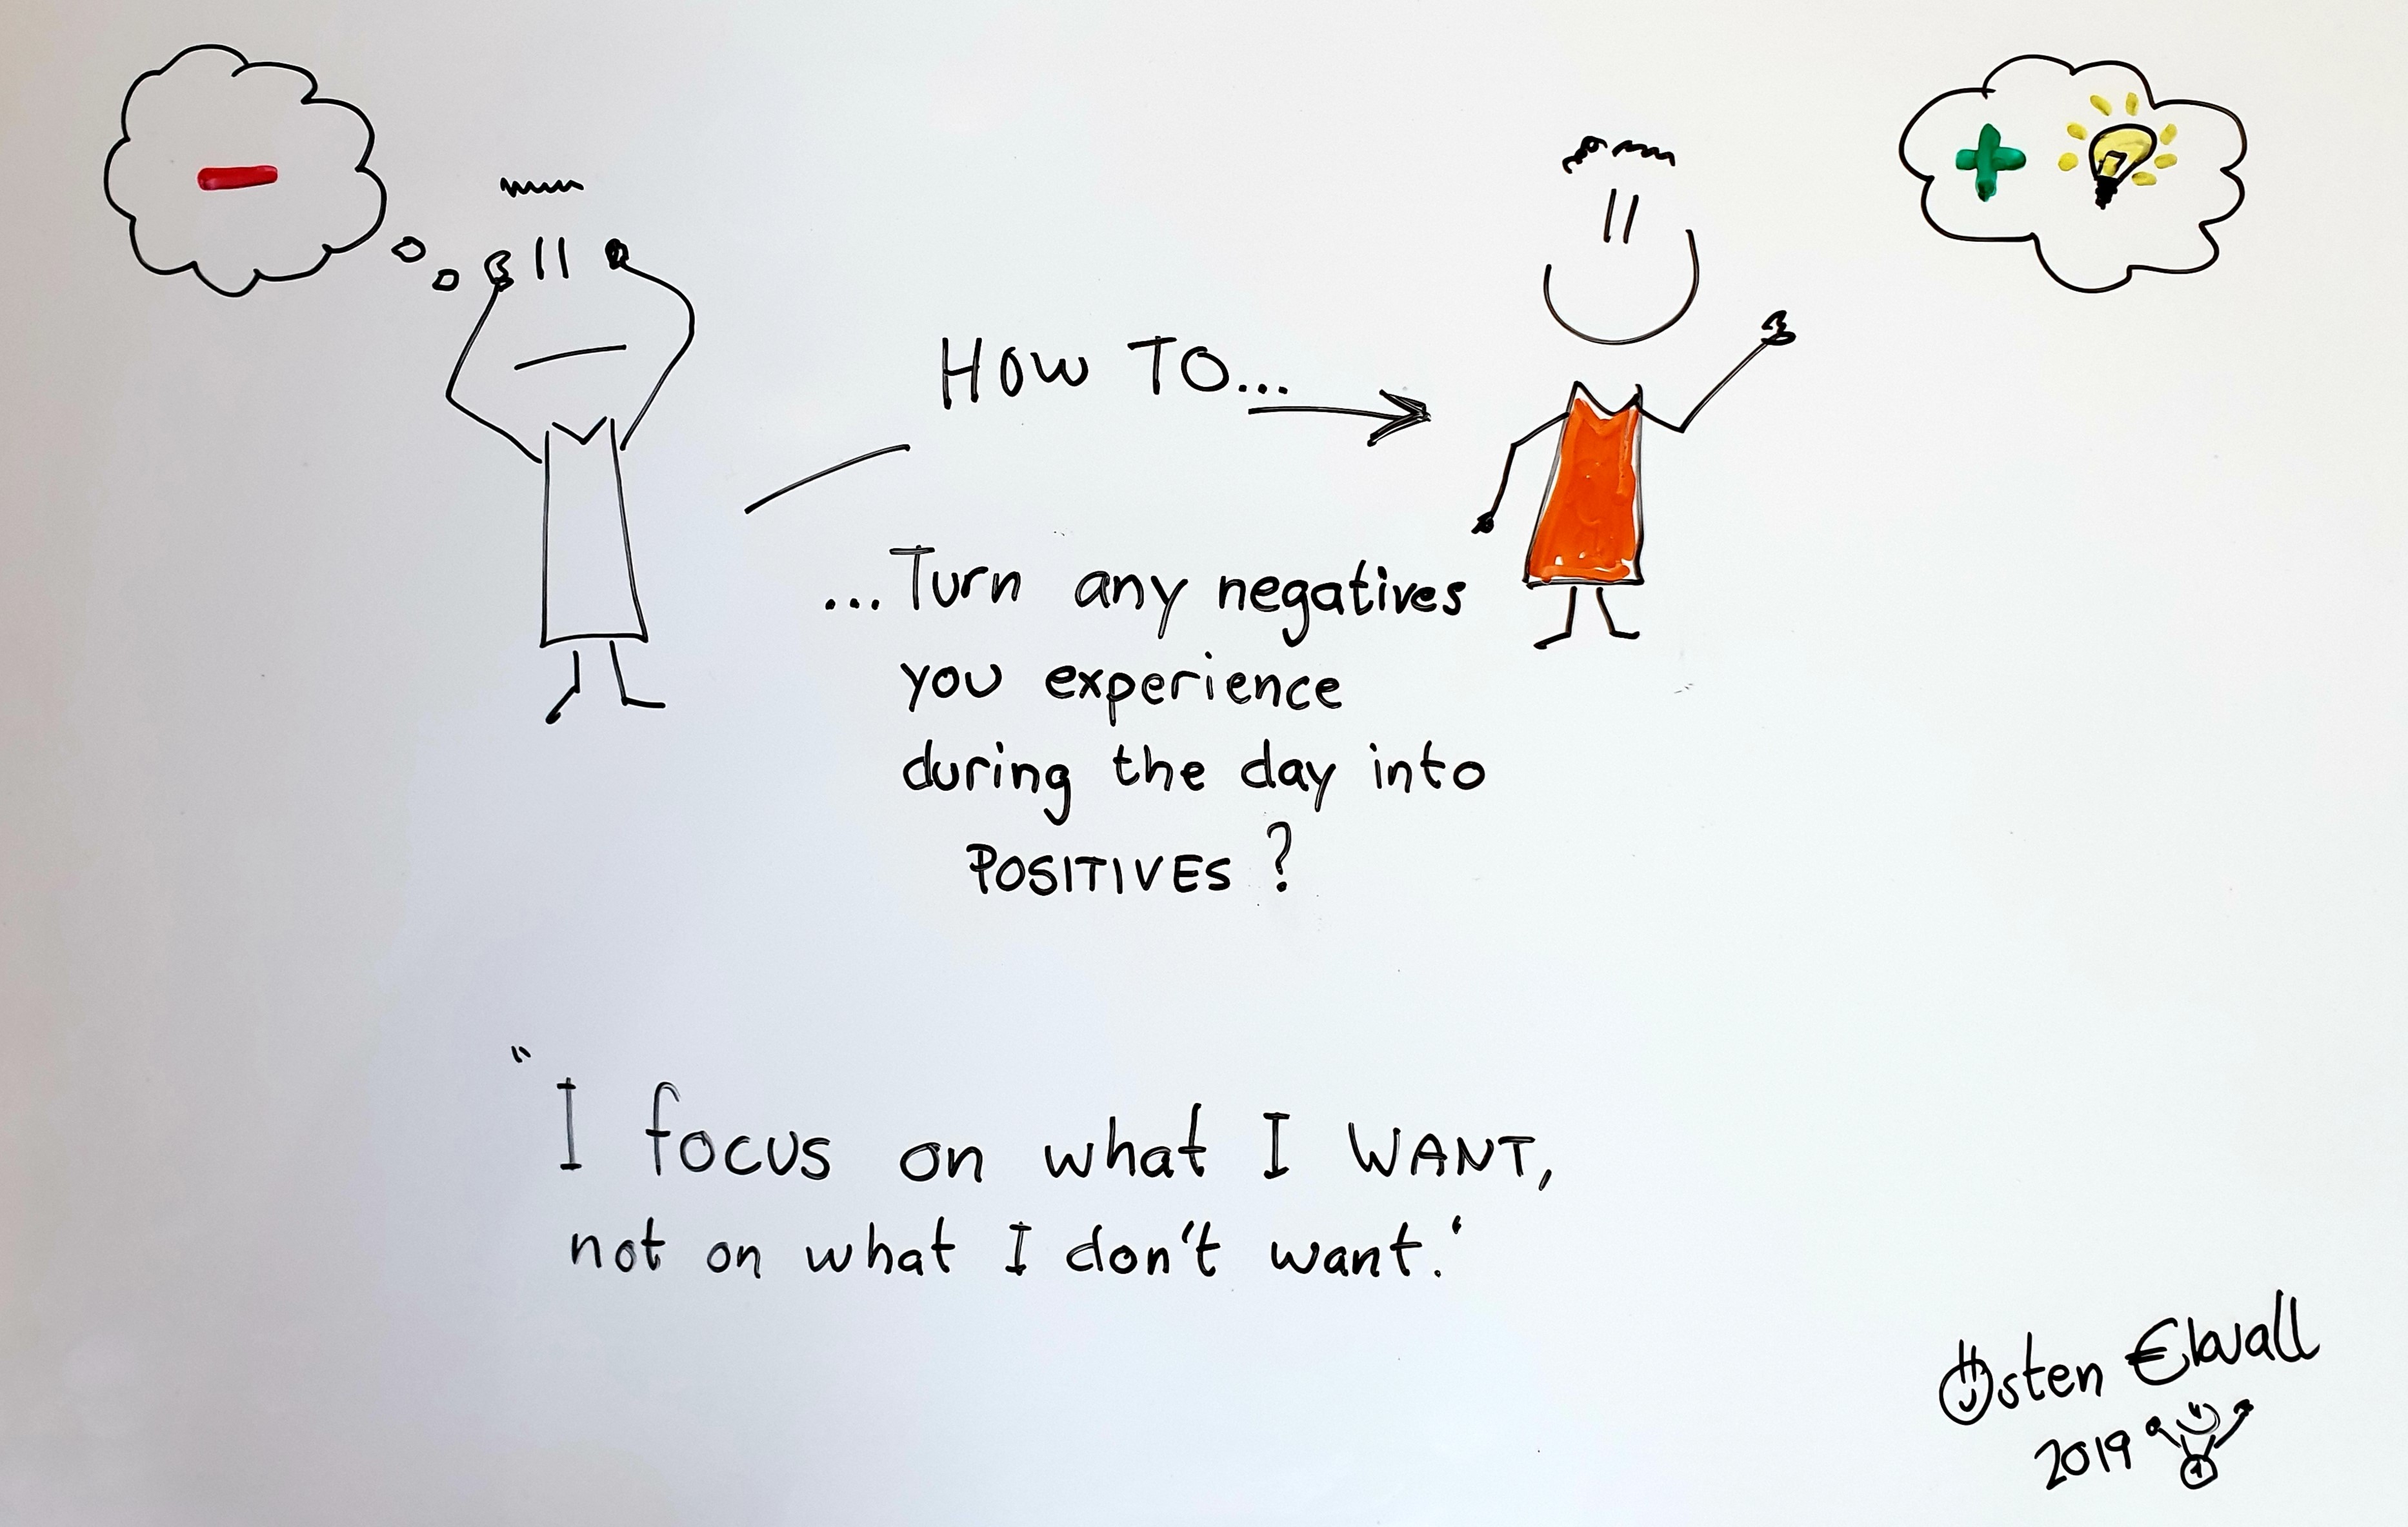 HOW TO...
...Turn any negatives
you experience
during the day into
POSITIVES?
"I focus on what I WANT,
not on what I don't want."
Östen Ekwall
2019